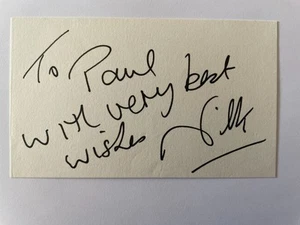 To Paul
with very best
wishes